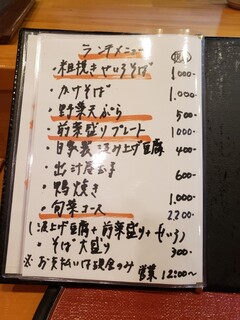 ランチメニュー (税込)
・粗挽きせいろそば 1000-
・かけそば 1.000-
・野菜天ぷら 500-
・前菜盛りプレート 1000-
・自家製汲み上げ豆腐 400-
・出汁巻玉子 600-
・鴨焼き 1.000-
・旬菜コース 2.200-
(汲上げ豆腐+前菜盛り+せいろ)
・そば大盛り 300-
※お支払いは現金のみ 営業12:00〜